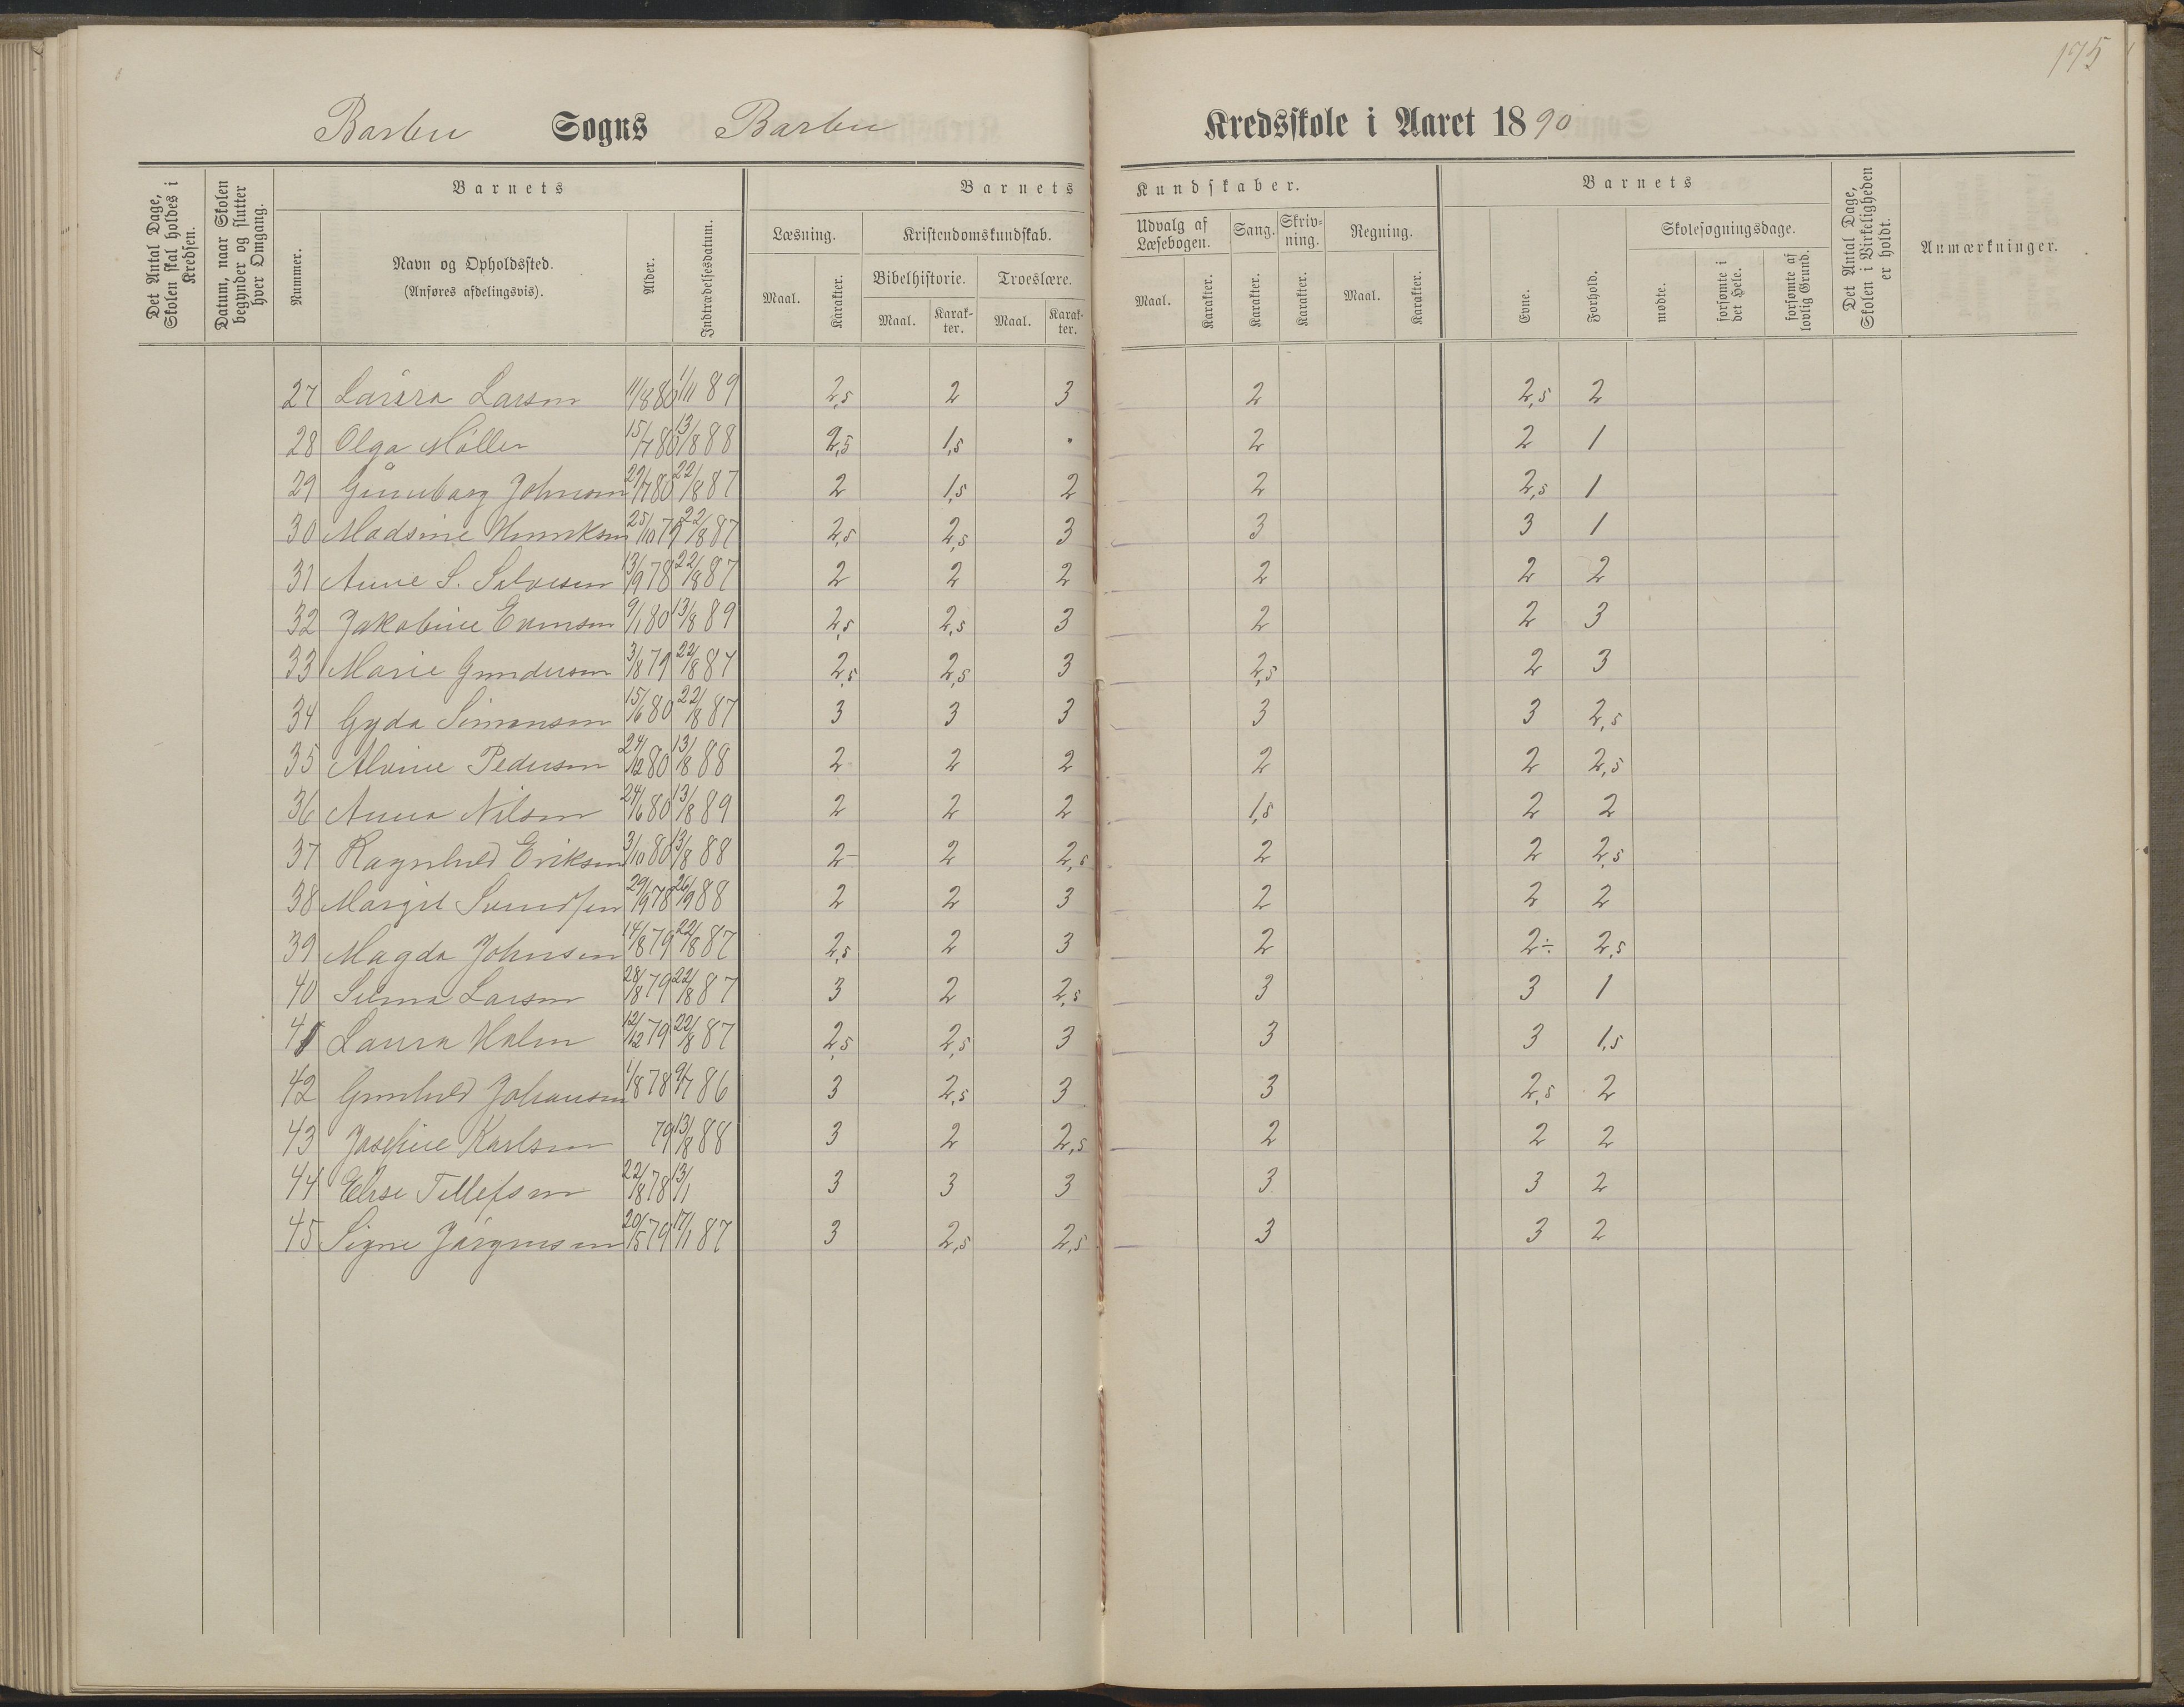 175
Barbu Sogns Barbu Kredsskole i Aaret 1890
Det Antal Dage, Skolen skal holdes i Kredsen.
Datum, naar Skolen begynder og slutter hver Omgang.
Barnets
Nummer.
Navn og Opholdssted.
(Anføres afdelingsvis).
Alder.
Indtrædelsesdatum.
Barnets Kundskaber.
Læsning.
Maal.
Karakter.
Kristendomskundskab.
Bibelhistorie.
Maal.
Karakter.
Troeslære.
Maal.
Karakter.
Udvalg af Læsebogen.
Maal.
Karakter.
Sang.
Karakter.
Skrivning.
Karakter.
Regning.
Maal.
Karakter.
Barnets
Evne.
Forhold.
Skolesøgningsdage.
mødte.
forsømte i det Hele.
forsømte af lovlig Grund.
Det Antal Dage, Skolen i Virkeligheden er holdt.
Anmærkninger.
27 Laura Larsen 11/8 80 1/11 89 2,5 2 3 2 2,5 2
28 Olga Møller 15/7 80 13/8 88 2,5 1,5 2 2 1
29 Gunnborg Johnsen 29/7 80 22/8 87 2 1,5 2 2 2,5 1
30 Madsine Henriksen 25/10 79 22/8 87 2,5 2,5 3 3 3 1
31 Anne S. Salvesen 13/9 78 22/8 87 2 2 2 2 2 2
32 Jakobine Evensen 9/1 80 13/8 89 2,5 2,5 3 2 2 3
33 Marie Gundersen 3/8 79 22/8 87 2,5 2,5 3 2,5 2 3
34 Gyda Simonsen 15/6 80 22/8 87 3 3 3 3 3 2,5
35 Alvine Pedersen 24/12 80 13/8 88 2 2 2 2 2 2,5
36 Anna Nilsen 24/6 80 13/8 89 2 2 2 1,5 2 2
37 Ragnhild Eriksen 3/10 80 13/8 88 2- 2 2,5 2 2 2,5
38 Margit Svendsen 29/9 78 26/9 88 2 2 3 2 2 2
39 Magda Johnsen 14/8 79 22/8 87 2,5 2 3 2 2÷ 2,5
40 Selma Larsen 28/8 79 22/8 87 3 2 2,5 3 3 1
41 Laura Holm 12/12 79 22/8 87 2,5 2,5 3 3 3 1,5
42 Gunhild Johansen 1/8 78 9/7 86 3 2,5 3 3 2,5 2
43 Josefine Karlsen 79 13/8 88 3 2 2,5 2 2 2
44 Elise Tellefsen 22/8 78 13/1 3 3 3 3 3 2
45 Signe Jørgensen 20/5 79 17/1 87 3 2,5 2,5 3 3 2